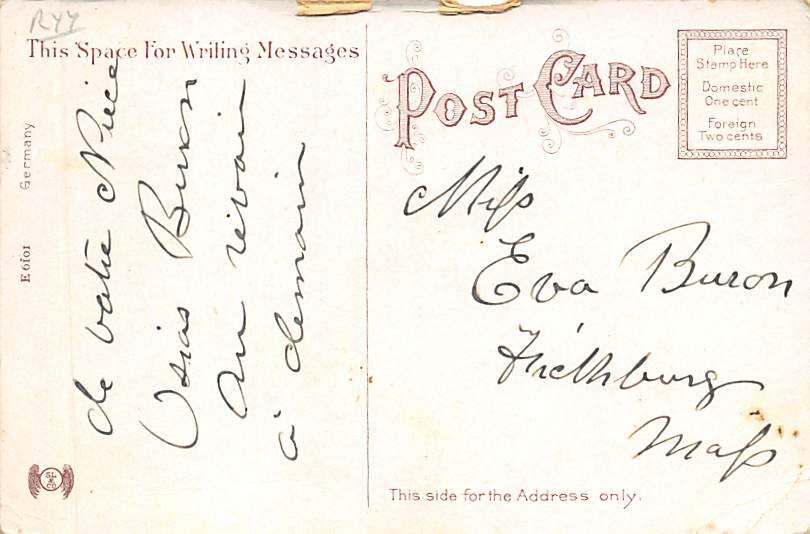 RYY
This Space For Writing Messages
POST CARD
Place
Stamp Here
Domestic
One cent
Foreign
Two cents
Germany
E 6101
de votre Niece
Osias Buron
Au revoir
à demain
Miss
Eva Buron
Fitchburg
Mass
S.L.
& CO
This side for the Address only.